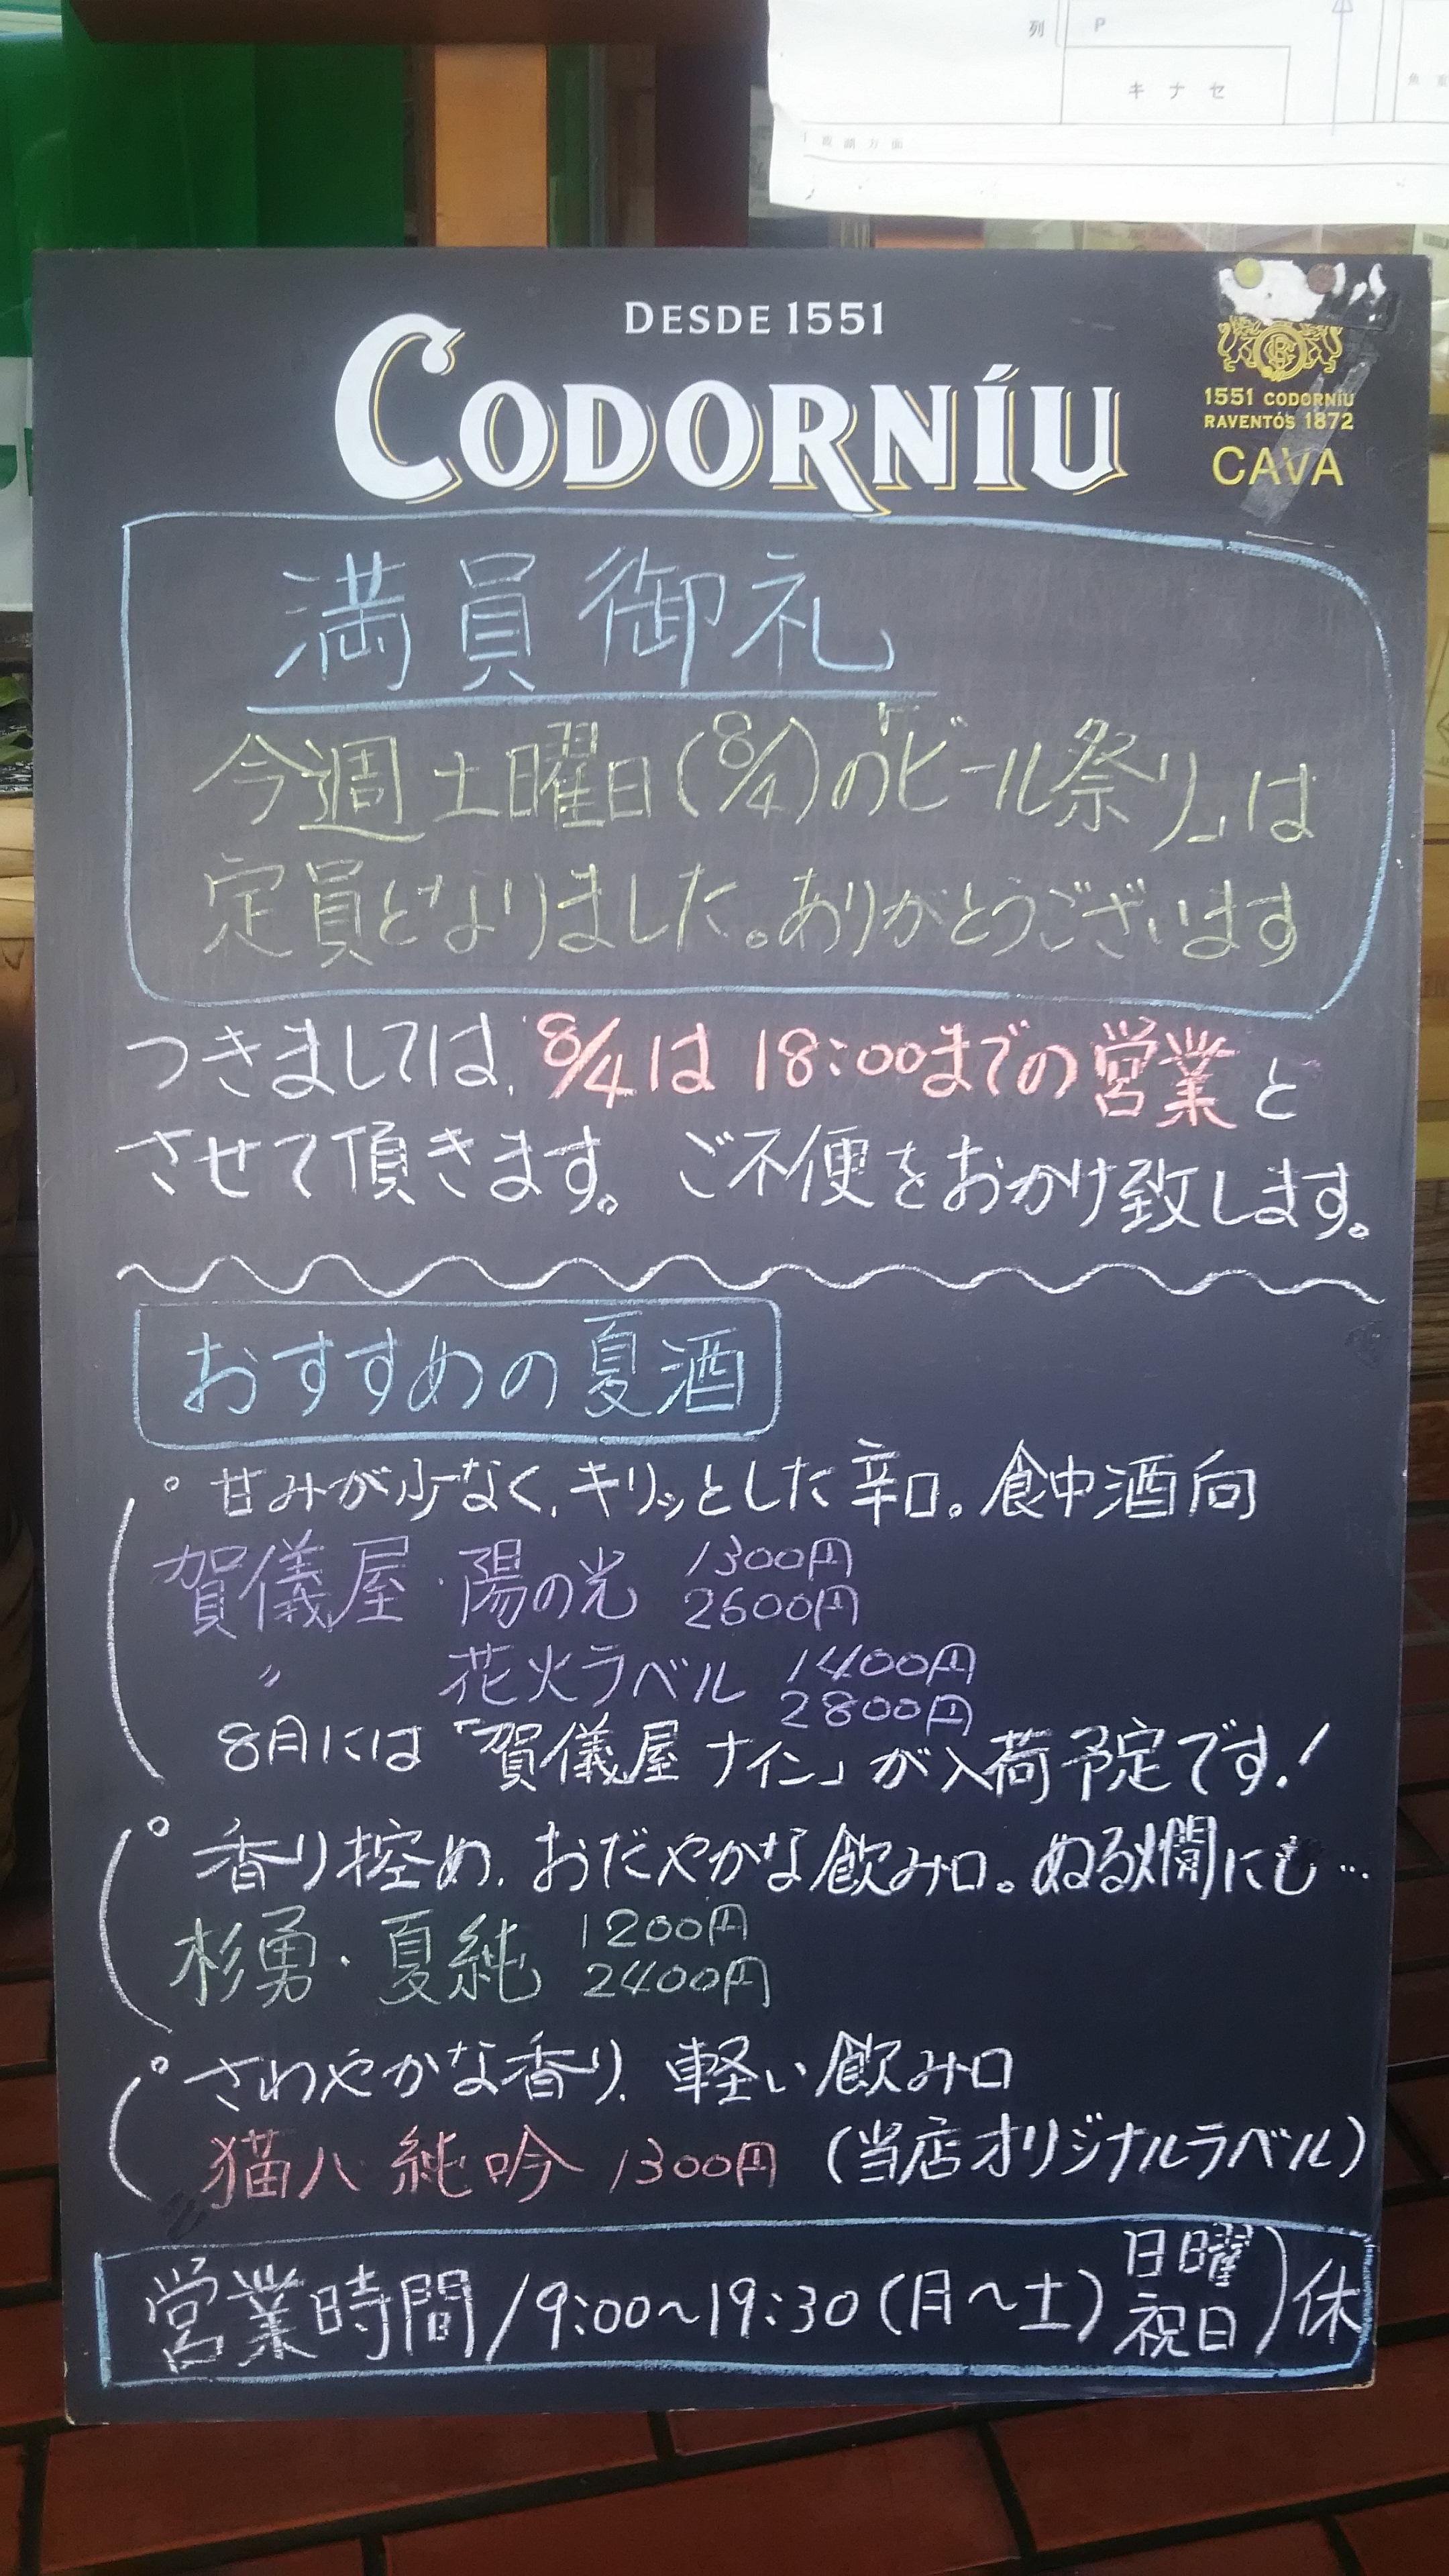 列 P
キナセ
DESDE 1551
CODORNÍU
1551 CODORNÍU
RAVENTÓS 1872
CAVA
満員御礼
今週土曜日(8/4)の「ビール祭り」は
定員となりました。ありがとうございます
つきましては、8/4は18:00までの営業と
させて頂きます。ご不便をおかけ致します。
おすすめの夏酒
○ 甘みが少なく、キリッとした辛口。食中酒向
賀儀屋・陽の光 1300円
2600円
〃 花火ラベル 1400円
2800円
8月には「賀儀屋ナイン」が入荷予定です!
○ 香り控め、おだやかな飲み口。ぬる燗にも…
杉勇・夏純 1200円
2400円
○ さわやかな香り、軽い飲み口
猫八 純吟 1300円 (当店オリジナルラベル)
営業時間/9:00~19:30(月~土) 日曜
祝日)休